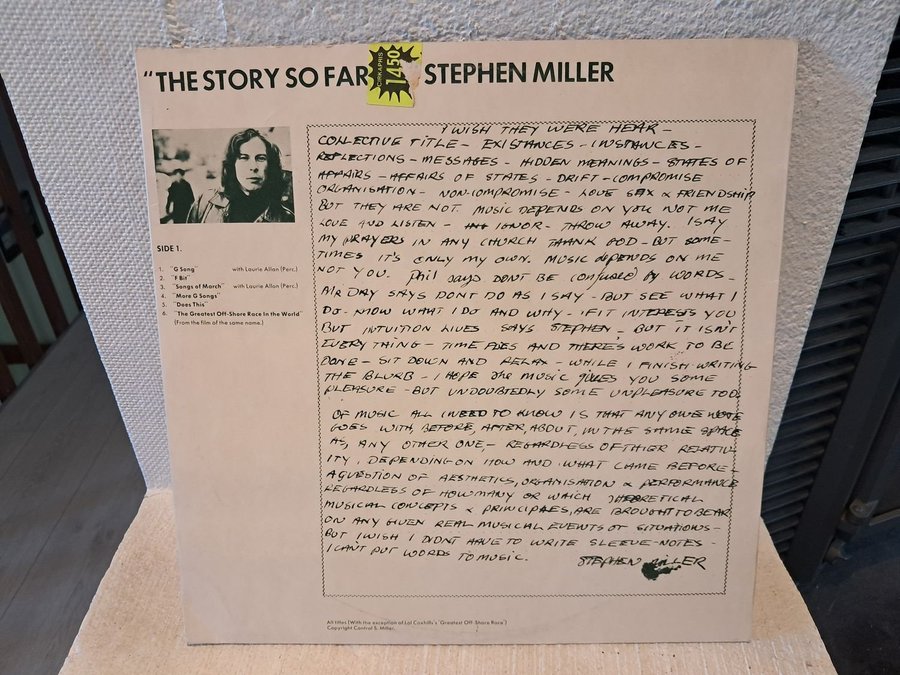 "THE STORY SO FAR
1450
STEPHEN MILLER
SIDE 1.
1. "G Song" with Laurie Allan (Perc.)
2. "F Bit"
3. "Songs of March" with Laurie Allan (Perc.)
4. "More G Songs"
5. "Does This"
6. "The Greatest Off-Shore Race In the World"
(From the film of the same name.)
I WISH THEY WERE HEAR -
COLLECTIVE TITLE - EXISTANCES - INSTANCES -
REFLECTIONS - MESSAGES - HIDDEN MEANINGS - STATES OF
AFFAIRS - AFFAIRS OF STATES - DRIFT - COMPROMISE
ORGANISATION - NON-COMPROMISE - LOVE SEX & FRIENDSHIP
BUT THEY ARE NOT. MUSIC DEPENDS ON YOU NOT ME
LOVE AND LISTEN - IGNOR - THROW AWAY. I SAY
MY PRAYERS IN ANY CHURCH THANK GOD - BUT SOME-
TIMES IT'S ONLY MY OWN. MUSIC DEPENDS ON ME
NOT YOU. Phil says DONT BE CONFUSED BY WORDS -
MR DAY SAYS DONT DO AS I SAY - BUT SEE WHAT I
DO - KNOW WHAT I DO AND WHY - IF IT INTERESTS YOU
BUT INTUITION LIVES SAYS STEPHEN - BUT IT ISN'T
EVERYTHING - TIME FLIES AND THERE'S WORK TO BE
DONE - SIT DOWN AND RELAX - WHILE I FINISH WRITING
THE BLURB - I HOPE THE MUSIC GIVES YOU SOME
PLEASURE - BUT UNDOUBTEDLY SOME UNPLEASURE TOO.
OF MUSIC ALL I NEED TO KNOW IS THAT ANY ONE NOTE
GOES WITH, BEFORE, AFTER, ABOUT, IN THE SAME SPACE
AS, ANY OTHER ONE - REGARDLESS OF THIER RELATIV-
ITY. DEPENDING ON HOW AND WHAT CAME BEFORE -
A QUESTION OF AESTHETICS, ORGANISATION & PERFORMANCE
REGARDLESS OF HOW MANY OR WHICH THEORETICAL
MUSICAL CONCEPTS & PRINCIPALES, ARE BROUGHT TO BEAR
ON ANY GIVEN REAL MUSICAL EVENTS OR SITUATIONS -
BUT I WISH I DIDNT HAVE TO WRITE SLEEVE-NOTES -
I CAN'T PUT WORDS TO MUSIC.
STEPHEN MILLER
All titles (With the exception of Lol Coxhills's 'Greatest Off-Shore Race')
Copyright Control S. Miller.